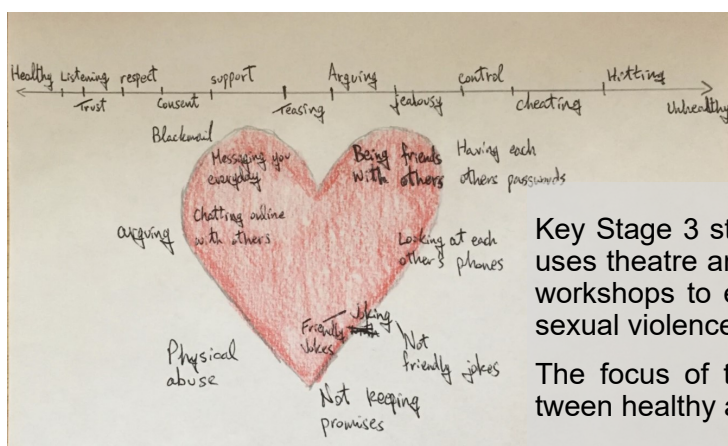 Healthy Listening respect support Arguing control Hitting
Trust Consent Teasing jealousy cheating Unhealthy
Blackmail
Messaging you
everyday
Being friends
with others
Having each
others passwords
arguing
Chatting online
with others
Looking at each
other's phones
Joking
Friendly
Jokes
Not
friendly jokes
Physical
abuse
Not keeping
promises
Key Stage 3 st
uses theatre ar
workshops to e
sexual violence
The focus of t
tween healthy a